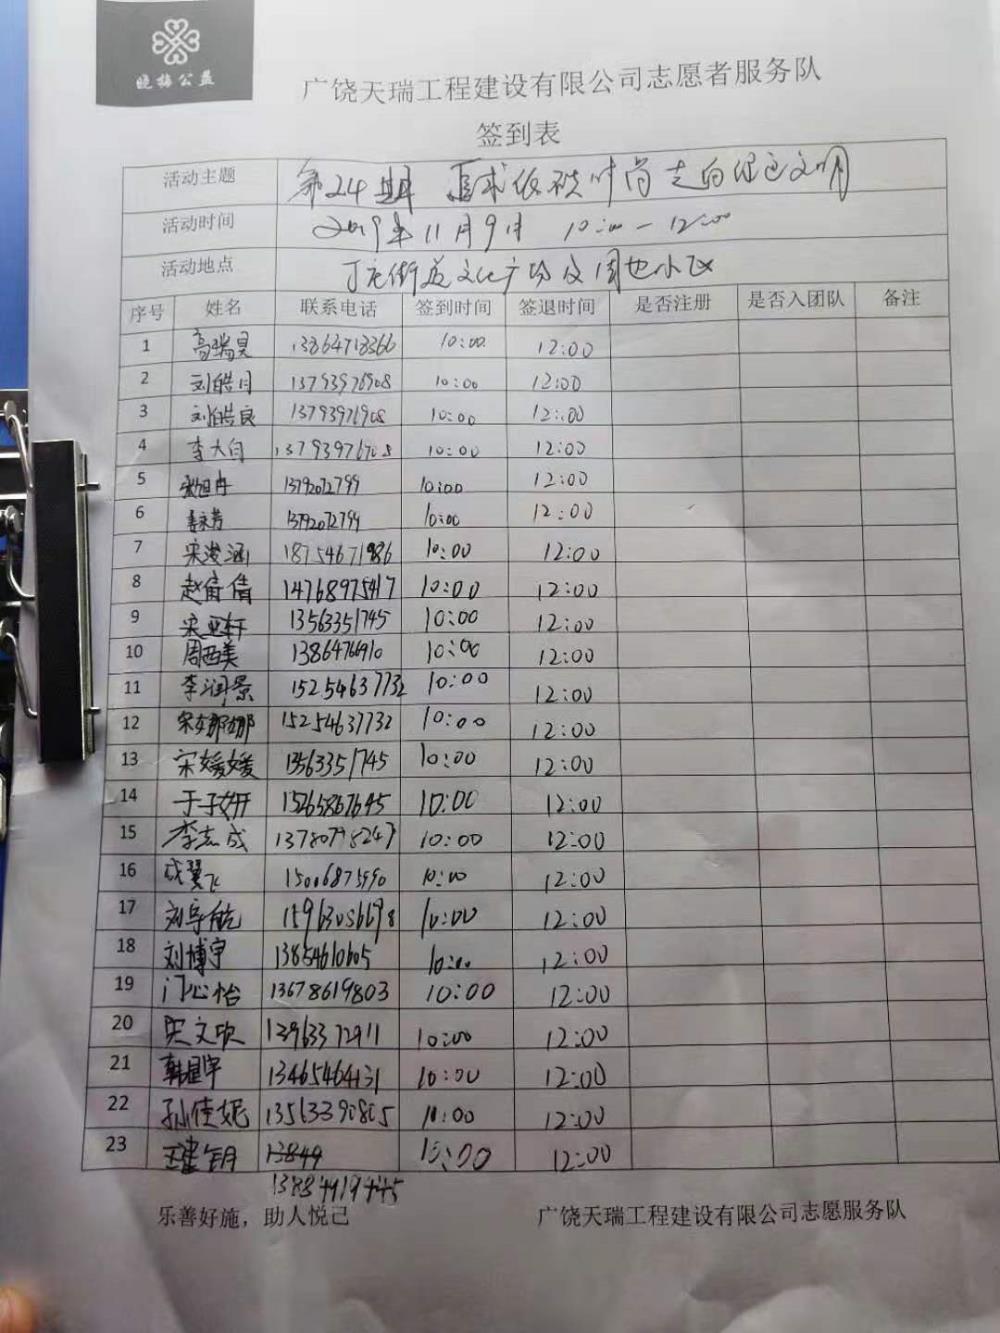 晓梅公益
广饶天瑞工程建设有限公司志愿者服务队
签到表
活动主题 第24期 追求低碳时尚 走向绿色文明
活动时间 2019年11月9日 10:00-12:00
活动地点 丁庄街道文化广场及周边小区
序号 姓名 联系电话 签到时间 签退时间 是否注册 是否入团队 备注
1 高瑞昊 13864718366 10:00 12:00
2 刘皓月 13793976908 10:00 12:00
3 刘皓良 13793976908 10:00 12:00
4 李大白 13793976908 10:00 12:00
5 13792072799 10:00 12:00
6 13792072799 10:00 12:00
7 宋浚涵 18754671986 10:00 12:00
8 14768975417 10:00 12:00
9 宋亚轩 13563351745 10:00 12:00
10 周西美 1386476910 10:00 12:00
11 李润景 15254637732 10:00 12:00
12 宋娜娜 15254637732 10:00 12:00
13 宋媛媛 13563351745 10:00 12:00
14 于子妍 15265867645 10:00 12:00
15 李志成 13780798247 10:00 12:00
16 成翼飞 15006875990 10:00 12:00
17 刘宇航 10:00 12:00
18 刘博宇 13854610605 10:00 12:00
19 门心怡 13678619803 10:00 12:00
20 吴文欣 13963372911 10:00 12:00
21 韩星宇 13465464131 10:00 12:00
22 孙佳妮 13563390805 10:00 12:00
23 13849 10:00 12:00
乐善好施，助人悦己 广饶天瑞工程建设有限公司志愿服务队